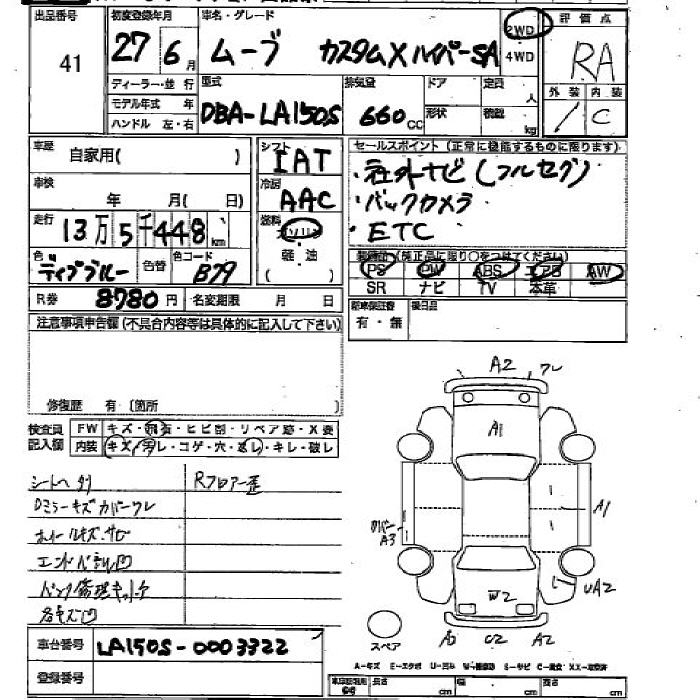 出品番号
41
初度登録年月
27 6月
車名・グレード
ムーブ カスタムXハイパーSA
2WD
4WD
評価点
RA
外装 内装
C
ディーラー・並行
モデル年式 年
ハンドル 左・右
型式
DBA-LA150S
排気量
660cc
ドア
形状
定員
人
積載
kg
車歴
自家用( )
車検
年 月( 日)
走行
13万5千448km
色
ディープブルー
色替
色コード
B79
R券
8780円
名変期限 月 日
シフト
IAT
冷房
AAC
燃料
ガソリン
軽・油
( )
セールスポイント(正常に機能するものに限ります)
・社外ナビ(フルセグ)
・バックカメラ
・ETC
装備品(純正品に限り○をつけてください)
PS PW ABS エアB AW
SR ナビ TV 本革
新車保証書
有・無
後日品
注意事項申告欄(不具合内容等は具体的に記入して下さい)
修復歴 有〔箇所 〕
検査員
記入欄
FW キズ・飛石・ヒビ割・リペア跡・X要
内装 キズ・汚レ・コゲ・穴・返レ・キレ・破レ
Rフロアー歪
Dミラーキズカバーワレ
ホイールキズ・サビ
パンク修理キット
各キズ凹
A2 ワレ
A1
A1
カバー
A3
W2
UA2
スペア
C2 A2
A-キズ
車台番号
LA150S-0003322
登録番号
長さ cm
幅 cm
高さ cm